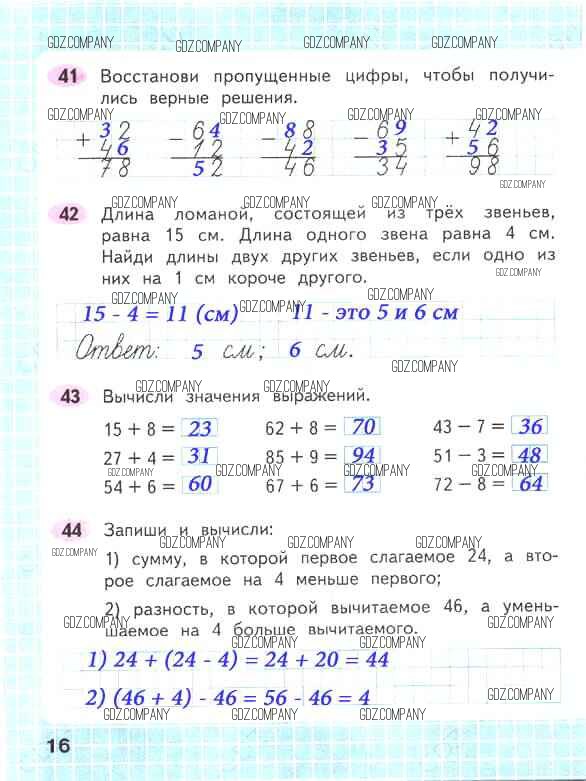 GDZ.COMPANY GDZ.COMPANY GDZ.COMPANY GDZ.COMPANY
41 Восстанови пропущенные цифры, чтобы получи-
лись верные решения.
GDZ.COMPANY GDZ.COMPANY GDZ.COMPANY GDZ.COMPANY
+ 32 − 64 − 88 − 69 + 42
46 12 42 35 56
78 52 46 34 98
GDZ.COMPANY
GDZ.COMPANY GDZ.COMPANY GDZ.COMPANY
42 Длина ломаной, состоящей из трёх звеньев,
равна 15 см. Длина одного звена равна 4 см.
GDZ.COMPANY GDZ.COMPANY GDZ.COMPANY
Найди длины двух других звеньев, если одно из
них на 1 см короче другого.
GDZ.COMPANY
GDZ.COMPANY GDZ.COMPANY GDZ.COMPANY
15 - 4 = 11 (см) 11 - это 5 и 6 см
Ответ: 5 см; 6 см.
GDZ.COMPANY GDZ.COMPANY
GDZ.COMPANY GDZ.COMPANY
43 Вычисли значения выражений.
15 + 8 = 23 62 + 8 = 70 43 − 7 = 36
27 + 4 = 31 85 + 9 = 94 51 − 3 = 48
GDZ.COMPANY GDZ.COMPANY GDZ.COMPANY GDZ.COMPANY
54 + 6 = 60 67 + 6 = 73 72 − 8 = 64
44 Запиши и вычисли:
GDZ.COMPANY GDZ.COMPANY GDZ.COMPANY GDZ.COMPANY
1) сумму, в которой первое слагаемое 24, а вто-
рое слагаемое на 4 меньше первого;
2) разность, в которой вычитаемое 46, а умень-
GDZ.COMPANY GDZ.COMPANY GDZ.COMPANY GDZ.COMPANY
шаемое на 4 больше вычитаемого.
GDZ.COMPANY GDZ.COMPANY GDZ.COMPANY
1) 24 + (24 - 4) = 24 + 20 = 44
2) (46 + 4) - 46 = 56 - 46 = 4
GDZ.COMPANY
GDZ.COMPANY GDZ.COMPANY GDZ.COMPANY
16